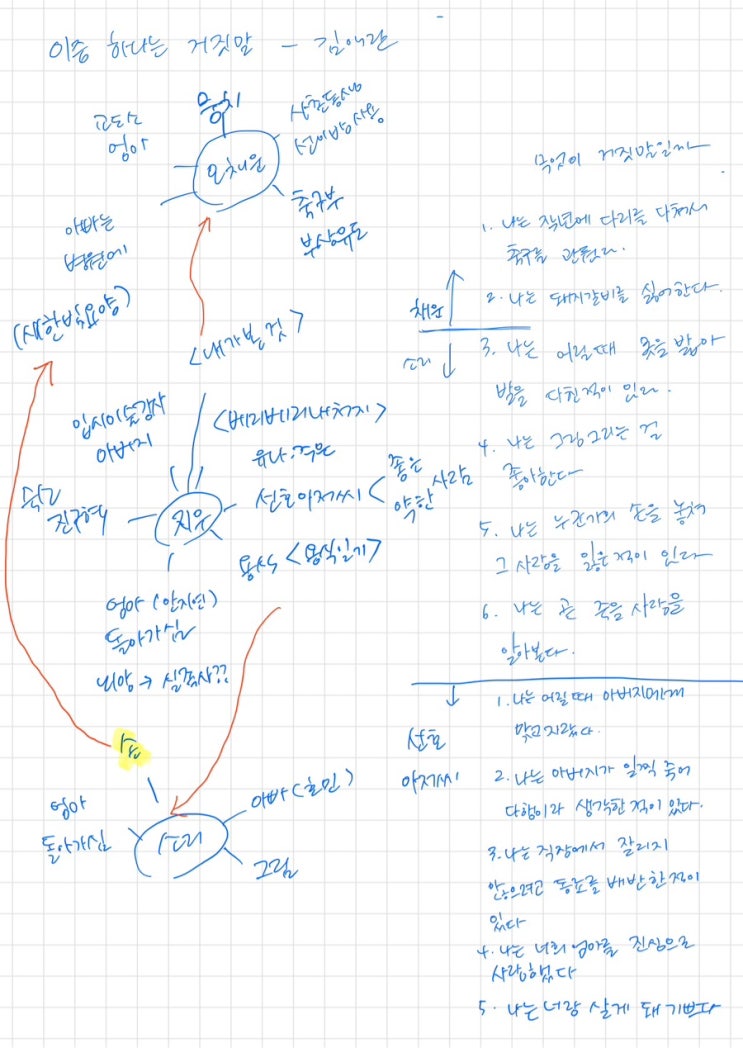 이중 하나는 거짓말 - 김애란
뭉치
고단한
엄마
사촌동생
선이 방 사용
오채운
축구부
부상유도
아빠는
병원에
(새한빛요양)
<내가 본 것>
무엇이 거짓말일까
1. 나는 작년에 다리를 다쳐서
축구를 관뒀다.
2. 나는 돼지갈비를 싫어한다.
채운
소리
3. 나는 어릴때 못을 밟아
발을 다친적이 있다.
4. 나는 그림그리는 걸
좋아한다
5. 나는 누군가의 손을 놓쳐
그 사람을 잃은적이 있다
6. 나는 곧 죽을 사람을
알아본다.
아버지
<베리베리내처지>
선호아저씨 <
좋은
약한
사람
지우
용식 <용식일기>
엄마 (안지연)
돌아가심
뇌양 → 실족사??
손
엄마
돌아가심
소리
아빠 (호민)
그림
선호
아저씨
1. 나는 어릴때 아버지에게
맞고자랐다.
2. 나는 아버지가 일찍 죽어
다행이라 생각한 적이 있다.
3. 나는 직장에서 잘리지
않으려고 동료를 배반한적이
있다
4. 나는 너희 엄마를 진심으로
사랑했었다
5. 나는 너랑 살게 돼 기쁘다